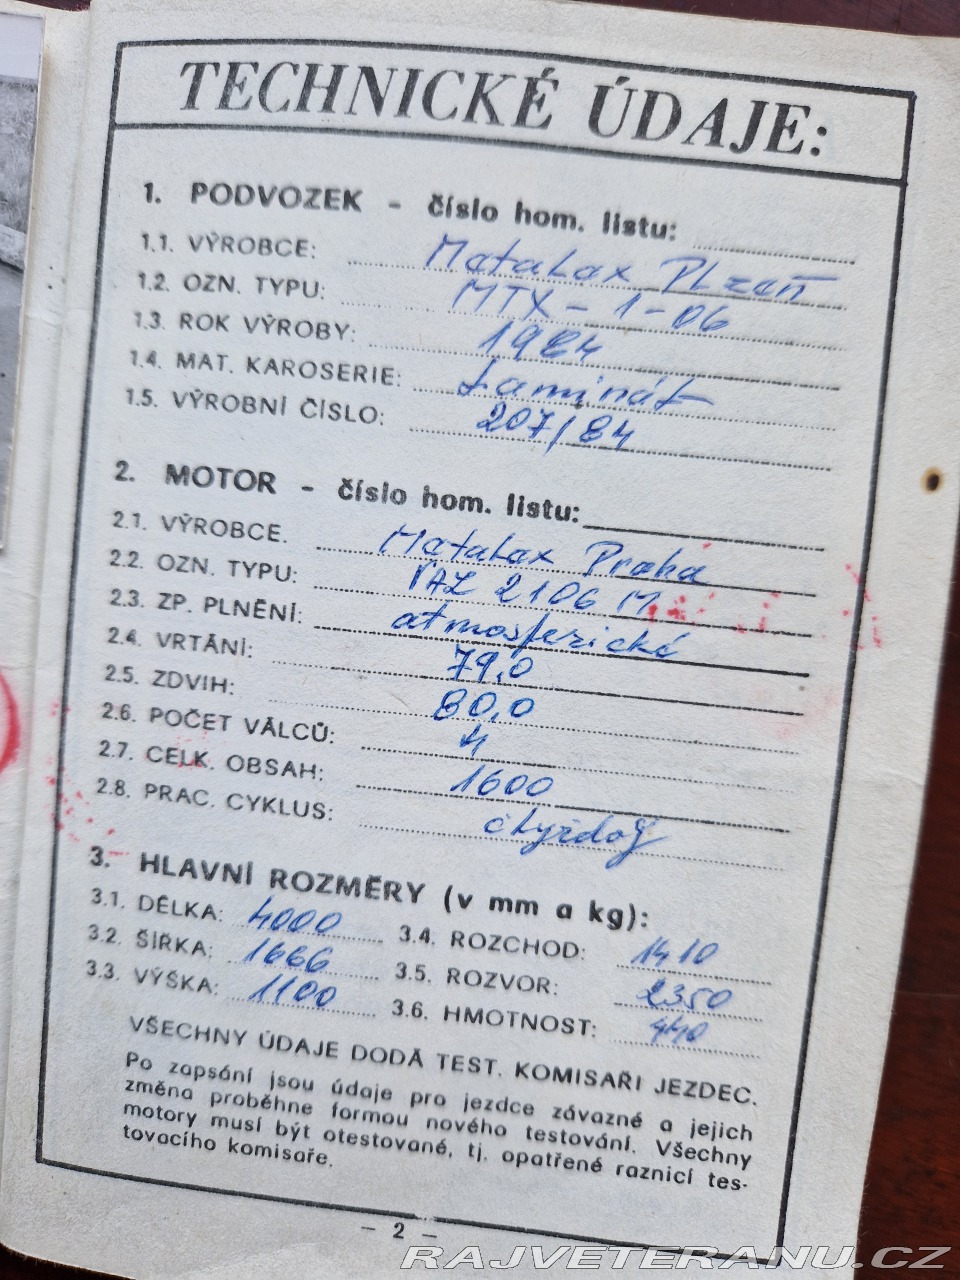 TECHNICKÉ ÚDAJE:
1. PODVOZEK - číslo hom. listu:
1.1. VÝROBCE: Metalex Plzeň
1.2. OZN. TYPU: MTX - 1-06
1.3. ROK VÝROBY: 1984
1.4. MAT. KAROSERIE: Laminát
1.5. VÝROBNÍ ČÍSLO: 207/84
2. MOTOR - číslo hom. listu:
2.1. VÝROBCE. Metalex Praha
2.2. OZN. TYPU: VAZ 2106 M
2.3. ZP. PLNĚNÍ: atmosferické
2.4. VRTÁNÍ: 79,0
2.5. ZDVIH: 80,0
2.6. POČET VÁLCŮ: 4
2.7. CELK. OBSAH: 1600
2.8. PRAC. CYKLUS: čtyřdob
3. HLAVNÍ ROZMĚRY (v mm a kg):
3.1. DÉLKA: 4000 3.4. ROZCHOD: 1410
3.2. ŠÍŘKA: 1666 3.5. ROZVOR: 2350
3.3. VÝŠKA: 1100 3.6. HMOTNOST: 440
VŠECHNY ÚDAJE DODÁ TEST. KOMISAŘI JEZDEC.
Po zapsání jsou údaje pro jezdce závazné a jejich
změna proběhne formou nového testování. Všechny
motory musí být otestované, tj. opatřené raznicí tes-
tovacího komisaře.
- 2 -
RAJVETERANU.CZ